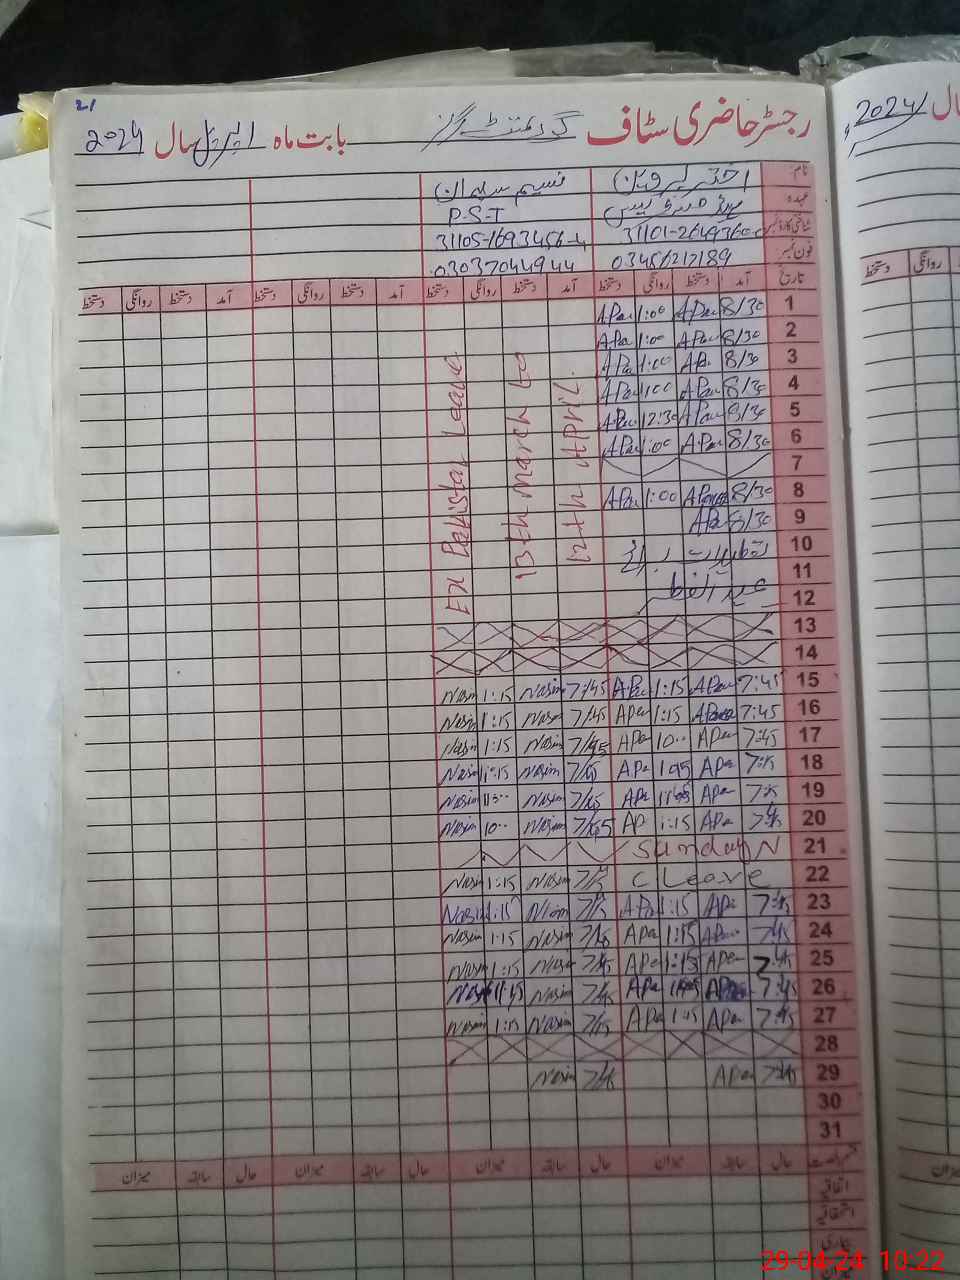 21
رجسٹر حاضری سٹاف گورنمنٹ گرلز بابت ماہ اپریل سال 2024
سال 2024
نام: اختر پروین نسیم
عہدہ P-S-T
شناختی کارڈ نمبر 31101-2649360-0 31105-1693456-4
فون نمبر: 03037044944
تاریخ آمد دستخط روانگی دستخط آمد دستخط روانگی دستخط آمد دستخط روانگی دستخط آمد دستخط روانگی دستخط
دستخط روانگی
EX Pakistan Leave
13th March to
12th April.
1 8/30 APar 1:00 APar
2 8/30 APar 1:00 APar
3 8/30 APar 1:00 APar
4 8/30 APar 1:00 APar
5 8/30 APar 12:30 APar
6 8/30 APar 1:00 APar
7
8 8/30 APar 1:00 APar
9 8/30 APar
10 تعطیلات
11
12 عید الفطر
13
14
15 7:45 APar 1:15 APar 7/45 Nasim 1:15 Nasim
16 7:45 APar 1:15 APar 7/45 Nasim 1:15 Nasim
17 7:45 APar APar 7/45 Nasim 1:15 Nasim
18 7:45 APa APa 7/45 Nasim 1:15 Nasim
19 7:45 APar APa 7/45 Nasim Nasim
20 7:45 APa 1:15 AP 7/45 Nasim Nasim
21 Sunday
22 C Leave 7/45 Nasim 1:15 Nasim
23 7:45 APa 1:15 APa 7/45 Nasim 1:15 Nasim
24 7:45 APar 1:15 APa 7/45 Nasim 1:15 Nasim
25 7:45 APar 1:15 APa 7/45 Nasim 1:15 Nasim
26 7:45 APa 7/45 Nasim Nasim
27 7:45 APa 1:15 APa 7/45 Nasim 1:15 Nasim
28
29 7:45 APar 7/45 Nasim
30
31
حال سابقہ میزان حال سابقہ میزان حال سابقہ میزان حال سابقہ میزان
اتفاقیہ
استحقاقیہ
بیماری
میزان
29-04-24 10:22